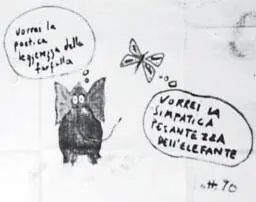 Vorrei la
poetica
leggerezza della
farfalla
VORREI LA
SIMPATICA
PESANTEZZA
DELL'ELEFANTE
ott. 70